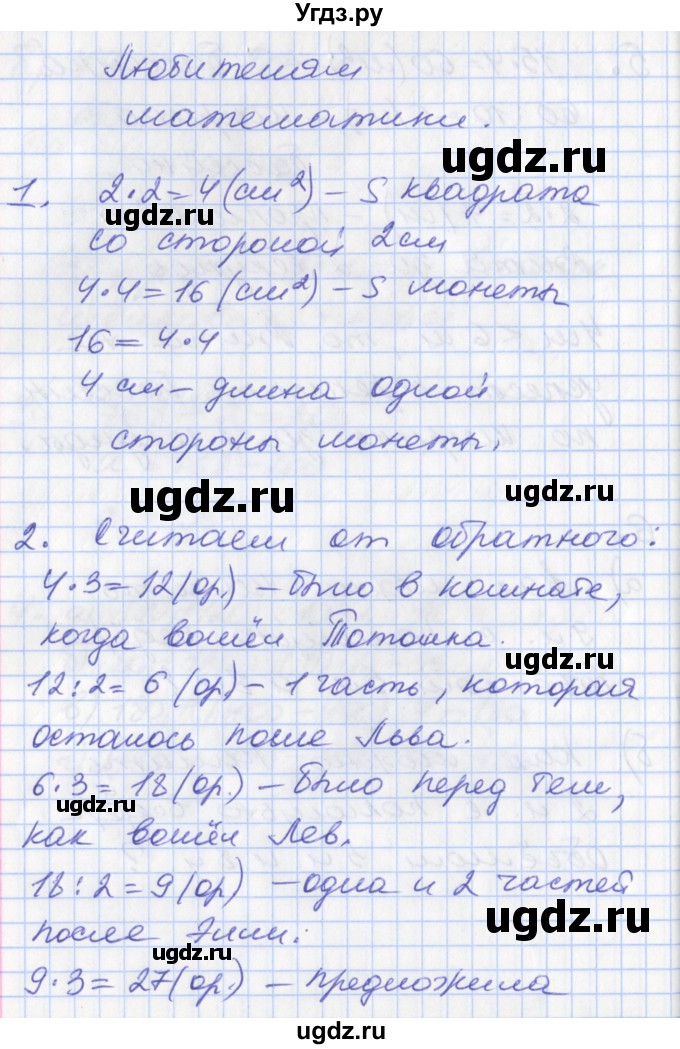 Угдз.ру
Любителям
математики.
ugdz.ru
1. 2·2=4(см²) – S квадрата
ugdz.ru
со стороной 2см
4·4=16 (см²) – S монеты
ugdz.ru
16=4·4
ugdz.ru
4 см – длина одной
стороны монеты.
ugdz.ru
ugdz.ru
2. Считаем от обратного:
4·3=12(ор.) – было в комнате,
ugdz.ru
когда вошёл Тотошка.
ugdz.ru
12:2=6 (ор) – 1 часть, которая
осталось после Льва.
6·3=18(ор.) – было перед тем,
ugdz.ru
как вошёл Лев.
18:2=9(ор) – одна и 2 частей
ugdz.ru
после Элли.
ugdz.ru
9·3=27(ор.) – предложила
ugdz.ru